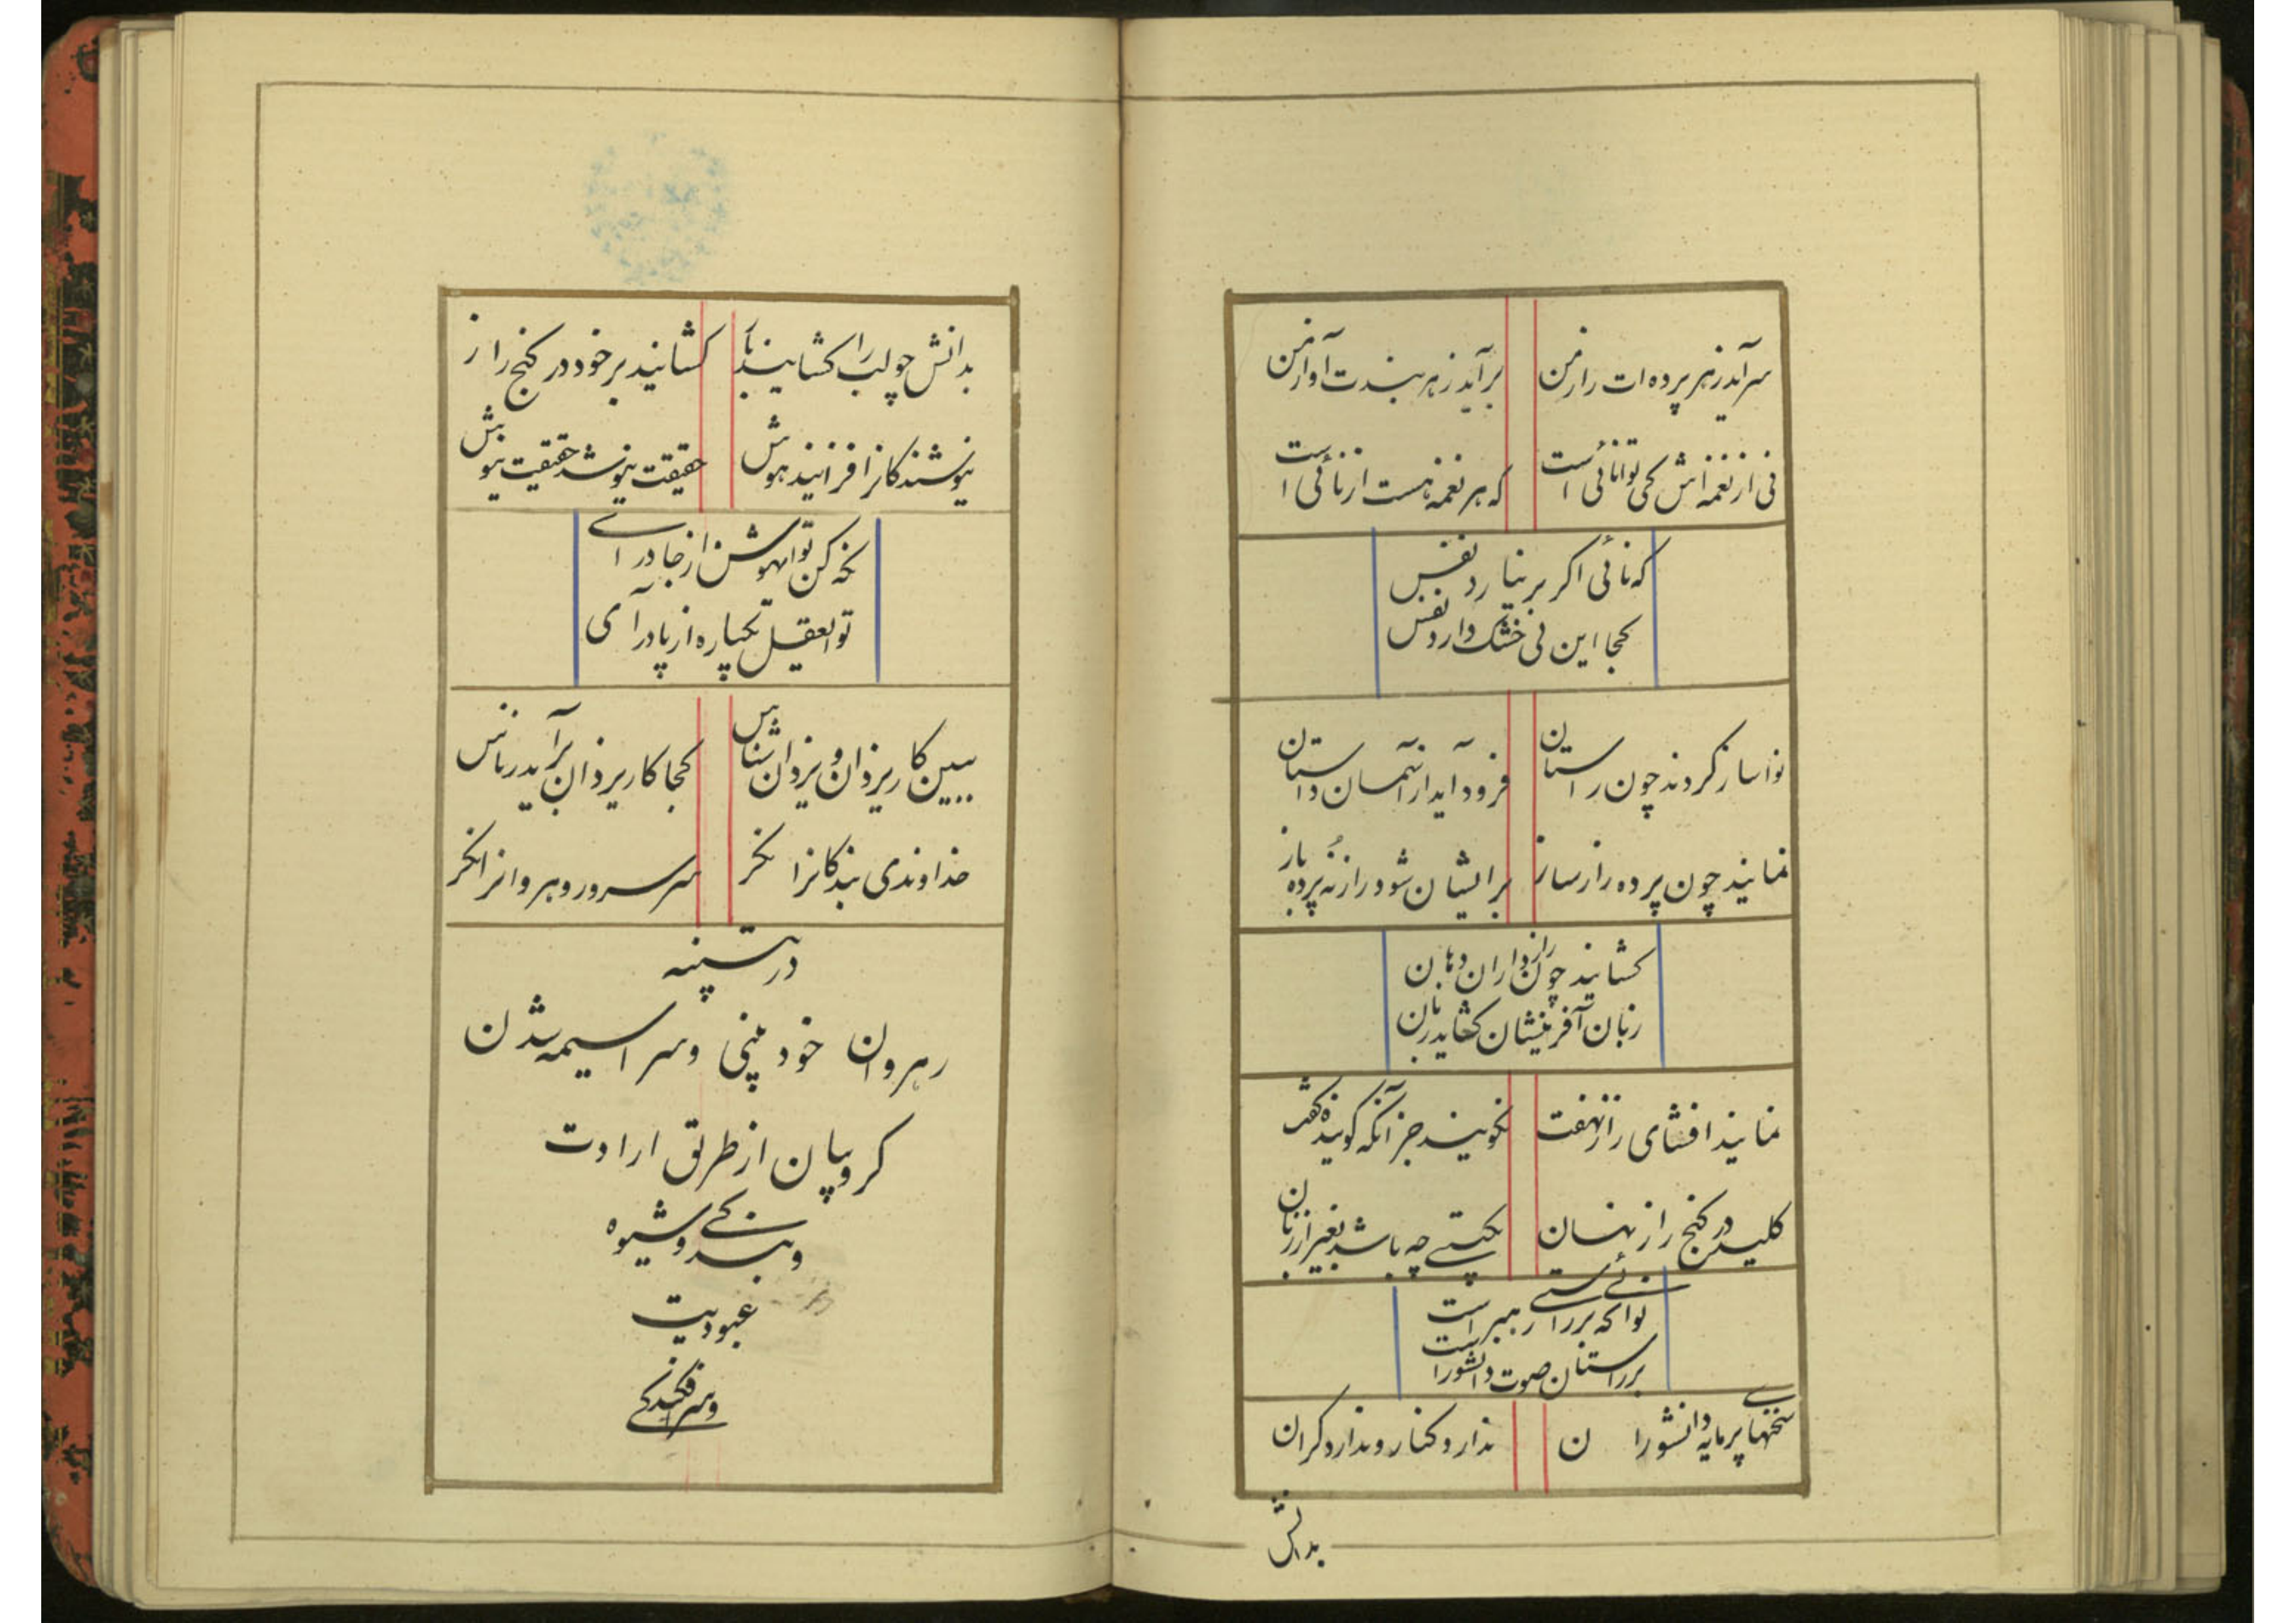 سرآید ز هر پرده‌ات راز من
برآید ز هر بندت آواز من
نی از نغمه‌اش کی توانائی است
که هر نغمه هست از نائی است
که نائی اگر بر نیارد نفس
کجا این نی خشک دارد نفس
نواساز کردند چون راستان
فرود آید از آسمان داستان
نمایند چون پرده راز ساز
بر ایشان شود راز نه پرده باز
گشایند چون رازداران دهان
زبان آفرینشان گشاید زبان
نمایند افشای راز نهفت
نگویند جز آنکه گوینده گفت
کلید در گنج راز نهان
بگیتی چه باشد بغیر از زبان
نوائی که بر راستی رهبر است
بر راستان صوت دانشور است
سخنهای پرمایه دانشوران
ندارد کنار و ندارد کران
بدانش
بدانش چو لب را گشایند باز
گشایند بر خود در گنج راز
نیوشندگانرا فزایند هوش
حقیقت نیوشد حقیقت نیوش
تو اهوش از جا درای
تو ای عقل یکباره از پا درآی
ببین کار یزدان و یزدان شناس
کجا کار یزدان برآید ز ناس
خداوندی بندگانرا نگر
سر سرور و رهروانرا نگر
در تنبیه
رهروان خود بینی و سراسیمه شدن
کروبیان از طریق ارادت
و بندگی و شیوه
عبودیت
و سرافکندگی